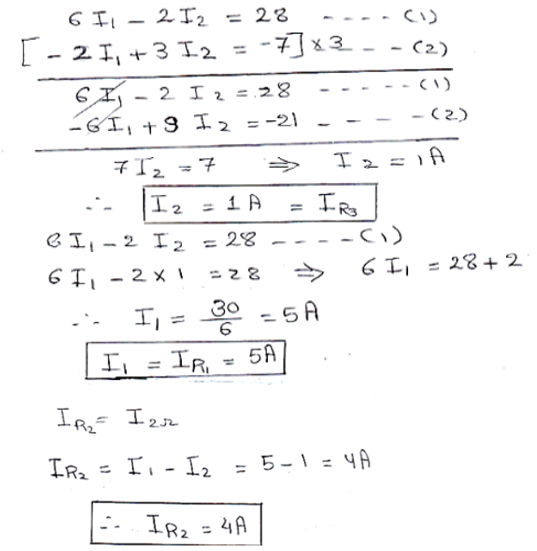 6 I₁ - 2 I₂ = 28 ---- (1)
[- 2 I₁ + 3 I₂ = -7] × 3 - - - (2)
6 I₁ - 2 I₂ = 28 ------ (1)
-6 I₁ + 9 I₂ = -21 - - - - (2)
7 I₂ = 7 ⇒ I₂ = 1A
∴ I₂ = 1A = I_R₃
6 I₁ - 2 I₂ = 28 ----- (1)
6 I₁ - 2 × 1 = 28 ⇒ 6 I₁ = 28 + 2
∴ I₁ = 30/6 = 5A
I₁ = I_R₁ = 5A
I_R₂ = I_2Ω
I_R₂ = I₁ - I₂ = 5 - 1 = 4A
∴ I_R₂ = 4A